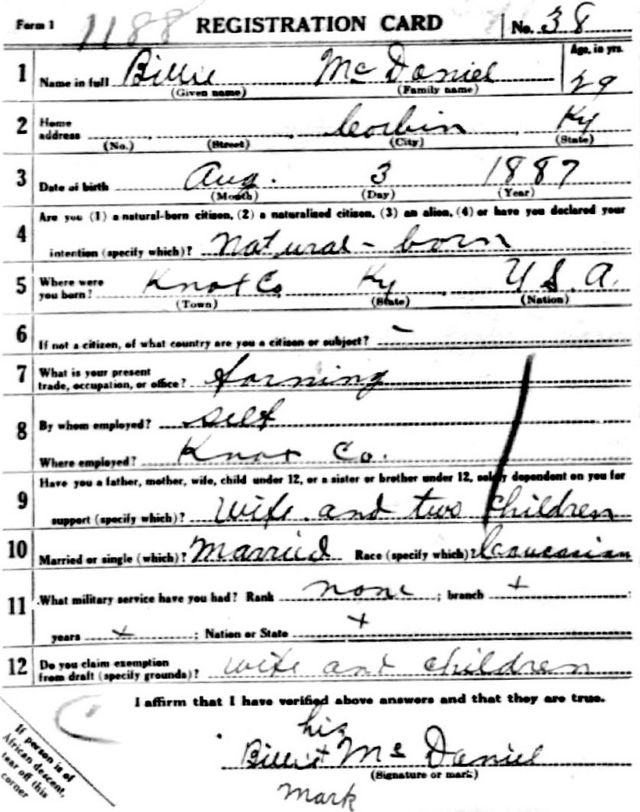 Form 1 1188 REGISTRATION CARD No. 38
1 Name in full Billie Mc Daniel Age, in yrs. 29
(Given name) (Family name)
2 Home address Corbin Ky
(No.) (Street) (City) (State)
3 Date of birth Aug. 3 1887
(Month) (Day) (Year)
4 Are you (1) a natural-born citizen, (2) a naturalized citizen, (3) an alien, (4) or have you declared your
intention (specify which)? Natural - born
5 Where were you born? Knox Co Ky U. S. A.
(Town) (State) (Nation)
6 If not a citizen, of what country are you a citizen or subject? -
7 What is your present trade, occupation, or office? farming
8 By whom employed? self
Where employed? Knox Co.
9 Have you a father, mother, wife, child under 12, or a sister or brother under 12, solely dependent on you for
support (specify which)? Wife and two children
10 Married or single (which)? Married Race (specify which)? Caucasian
11 What military service have you had? Rank none ; branch + ;
years + ; Nation or State +
12 Do you claim exemption from draft (specify grounds)? wife and children
I affirm that I have verified above answers and that they are true.
his
Billie + Mc Daniel
(Signature or mark)
mark
If person is of
African descent,
tear off this
corner